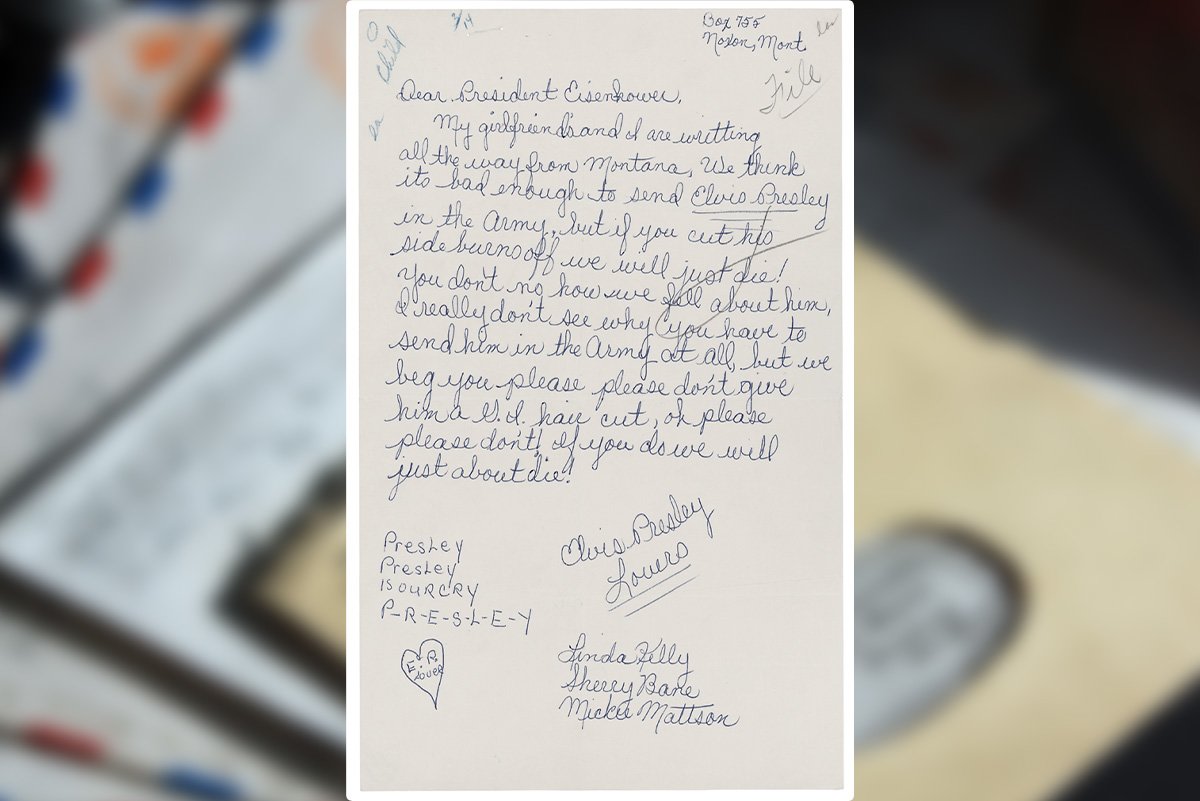 Child
Box 755
Noxon, Mont
File
Dear President Eisenhower,
My girlfriend's and I are writting
all the way from Montana, We think
its bad enough to send Elvis Presley
in the Army, but if you cut his
side burns off we will just die!
You don't no how we fell about him,
I really don't see why you have to
send him in the Army at all, but we
beg you please please don't give
him a G.I. hair cut, oh please
please don't! If you do we will
just about die!
Elvis Presley
Lovers
Presley
Presley
IS OUR CRY
P-R-E-S-L-E-Y
Linda Kelly
Sherry Bane
Mickie Mattson
E. P.
Lover